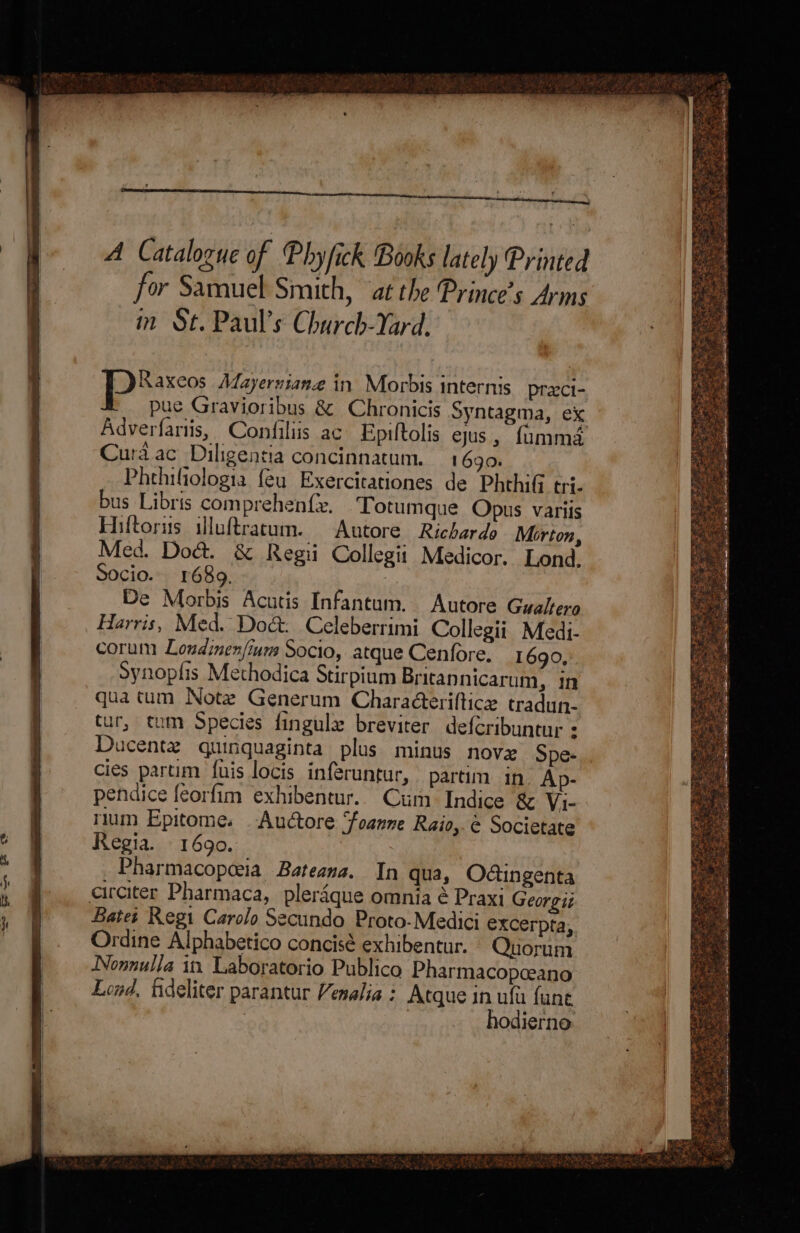 A Catalogue of Phyſick Books lately Printed
for Samuel Smith, at the Prince's Arms
in St. Paul's Church-Yard.
PRaxeos Mayernianæ in Morbis internis præci-
pue Gravioribus & Chronicis Syntagma, ex
Adverſariis, Conſiliis ac Epiſtolis ejus, ſummá
Curá ac Diligentia concinnatum. 1690.
Phthiſiologia ſeu Exercitationes de Phthiſi tri-
bus Libris comprehenſæ. Totumque Opus variis
Hiſtoriis illuſtratum. Autore Richardo Morton,
Med. Doct. & Regii Collegii Medicor. Lond.
Socio. 1689.
De Morbis Acutis Infantum. Autore Gualtero
Harris, Med. Doct. Celeberrimi Collegii Medi-
corum Londinenſium Socio, atque Cenſore. 1690.
Synopſis Methodica Stirpium Britannicarum, in
qua tum Notæ Generum Characteriſticæ tradun-
tur, tum Species ſingulæ breviter deſcribuntur :
Ducentæ quinquaginta plus minus novæ Spe-
cies partim ſuis locis inſeruntur, partim in Ap-
pendice ſeorſim exhibentur. Cum Indice & Vi-
rium Epitome. Auctore Joanne Raio, è Societate
Regia. 1690.
Pharmacopœia Bateana. In qua, Octingenta
circiter Pharmaca, pleráque omnia è Praxi Georgii
Batei Regi Carolo Secundo Proto-Medici excerpta,
Ordine Alphabetico concisè exhibentur. Quorum
Nonnulla in Laboratorio Publico Pharmacopœano
Lond. fideliter parantur Venalia : Atque in uſu ſunt
hodierno